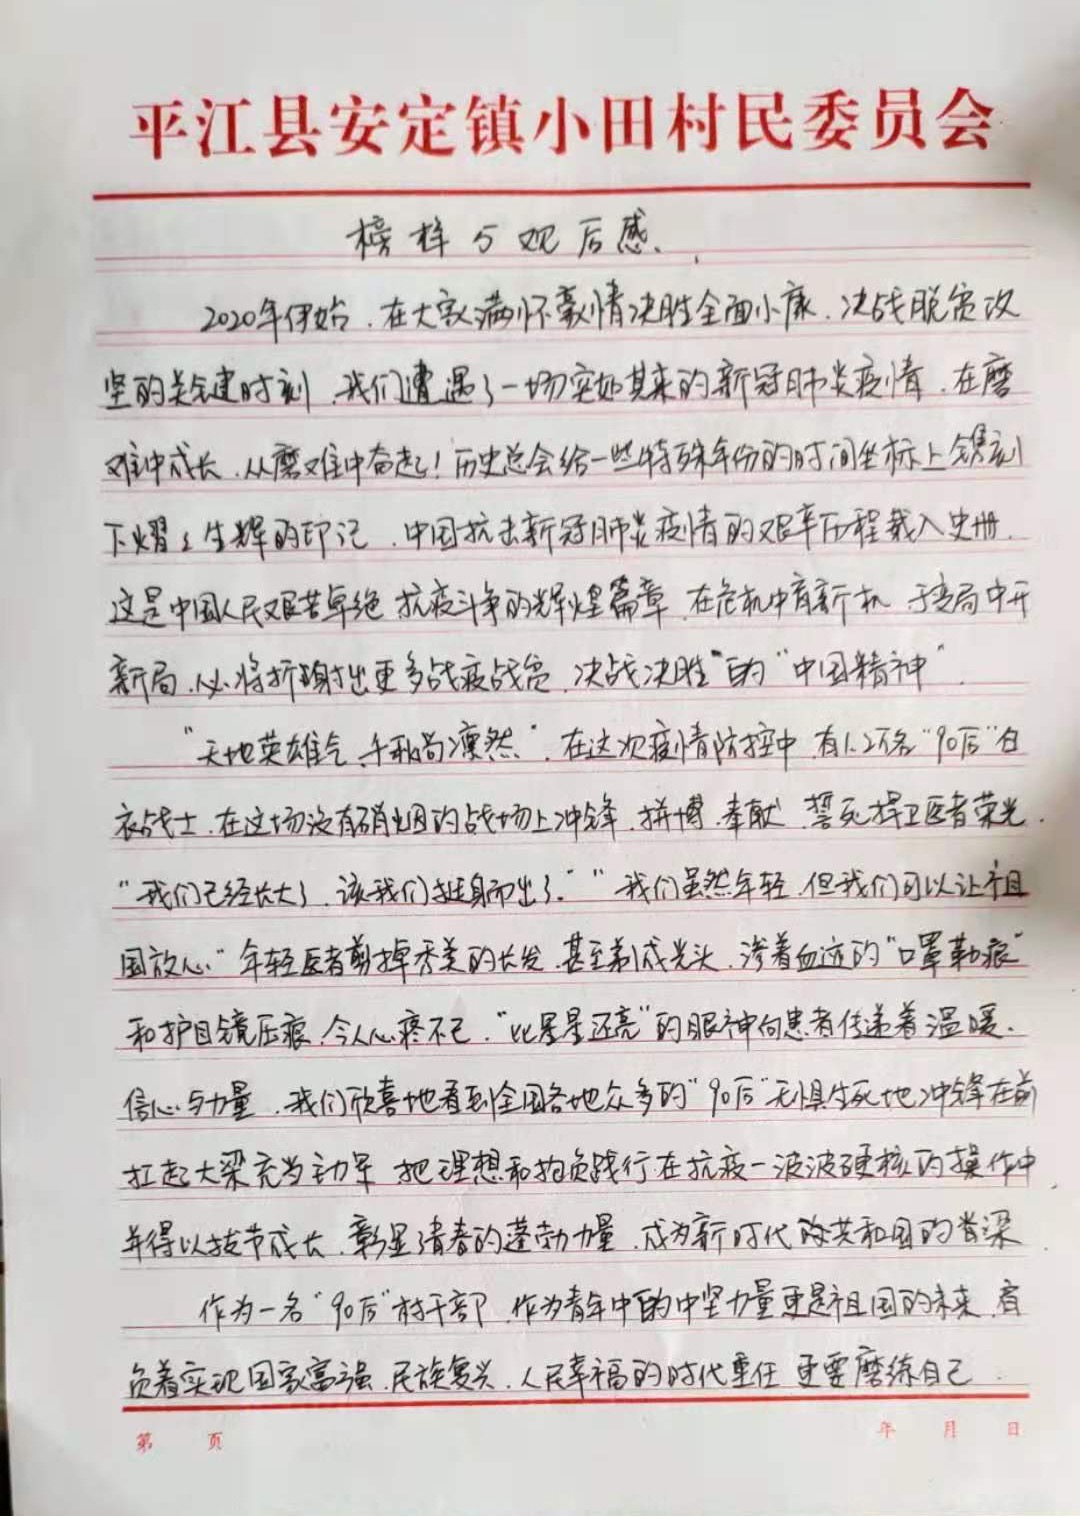 平江县安定镇小田村民委员会
榜样5观后感.
2020年伊始.在大家满怀豪情决胜全面小康.决战脱贫攻
坚的关键时刻.我们遭遇了一场突如其来的新冠肺炎疫情.在磨
难中成长.从磨难中奋起!历史总会给一些特殊年份的时间坐标上镌刻
下熠々生辉的印记.中国抗击新冠肺炎疫情的艰辛历程载入史册.
这是中国人民艰苦卓绝抗疫斗争的辉煌篇章.在危机中育新机 于变局中开
新局.必将折射出更多战疫战贫.决战决胜"的"中国精神".
"天地英雄气.千秋尚凛然."在这次疫情防控中.有1.2万名"90后"白
衣战士.在这场没有硝烟的战场上冲锋.拼博.奉献.誓死捍卫医者荣光.
"我们已经长大了.该我们挺身而出了.""我们虽然年轻.但我们可以让祖
国放心."年轻医者剪掉秀美的长发.甚至剃成光头.渗着血迹的"口罩勒痕"
和护目镜压痕.令人心疼不已."比星星还亮"的眼神向患者传递着温暖.
信心与力量.我们欣喜地看到全国各地众多的"90后"无惧生死地冲锋在前
扛起大梁充当主力军 把理想和抱负践行在抗疫一波波硬核的操作中
并得以拔节成长.彰显青春的蓬勃力量.成为新时代 共和国的脊梁
作为一名"90后"村干部.作为青年中的中坚力量更是祖国的未来.肩
负着实现国家富强.民族复兴.人民幸福的时代重任 更要磨练自己.
第 页 年 月 日